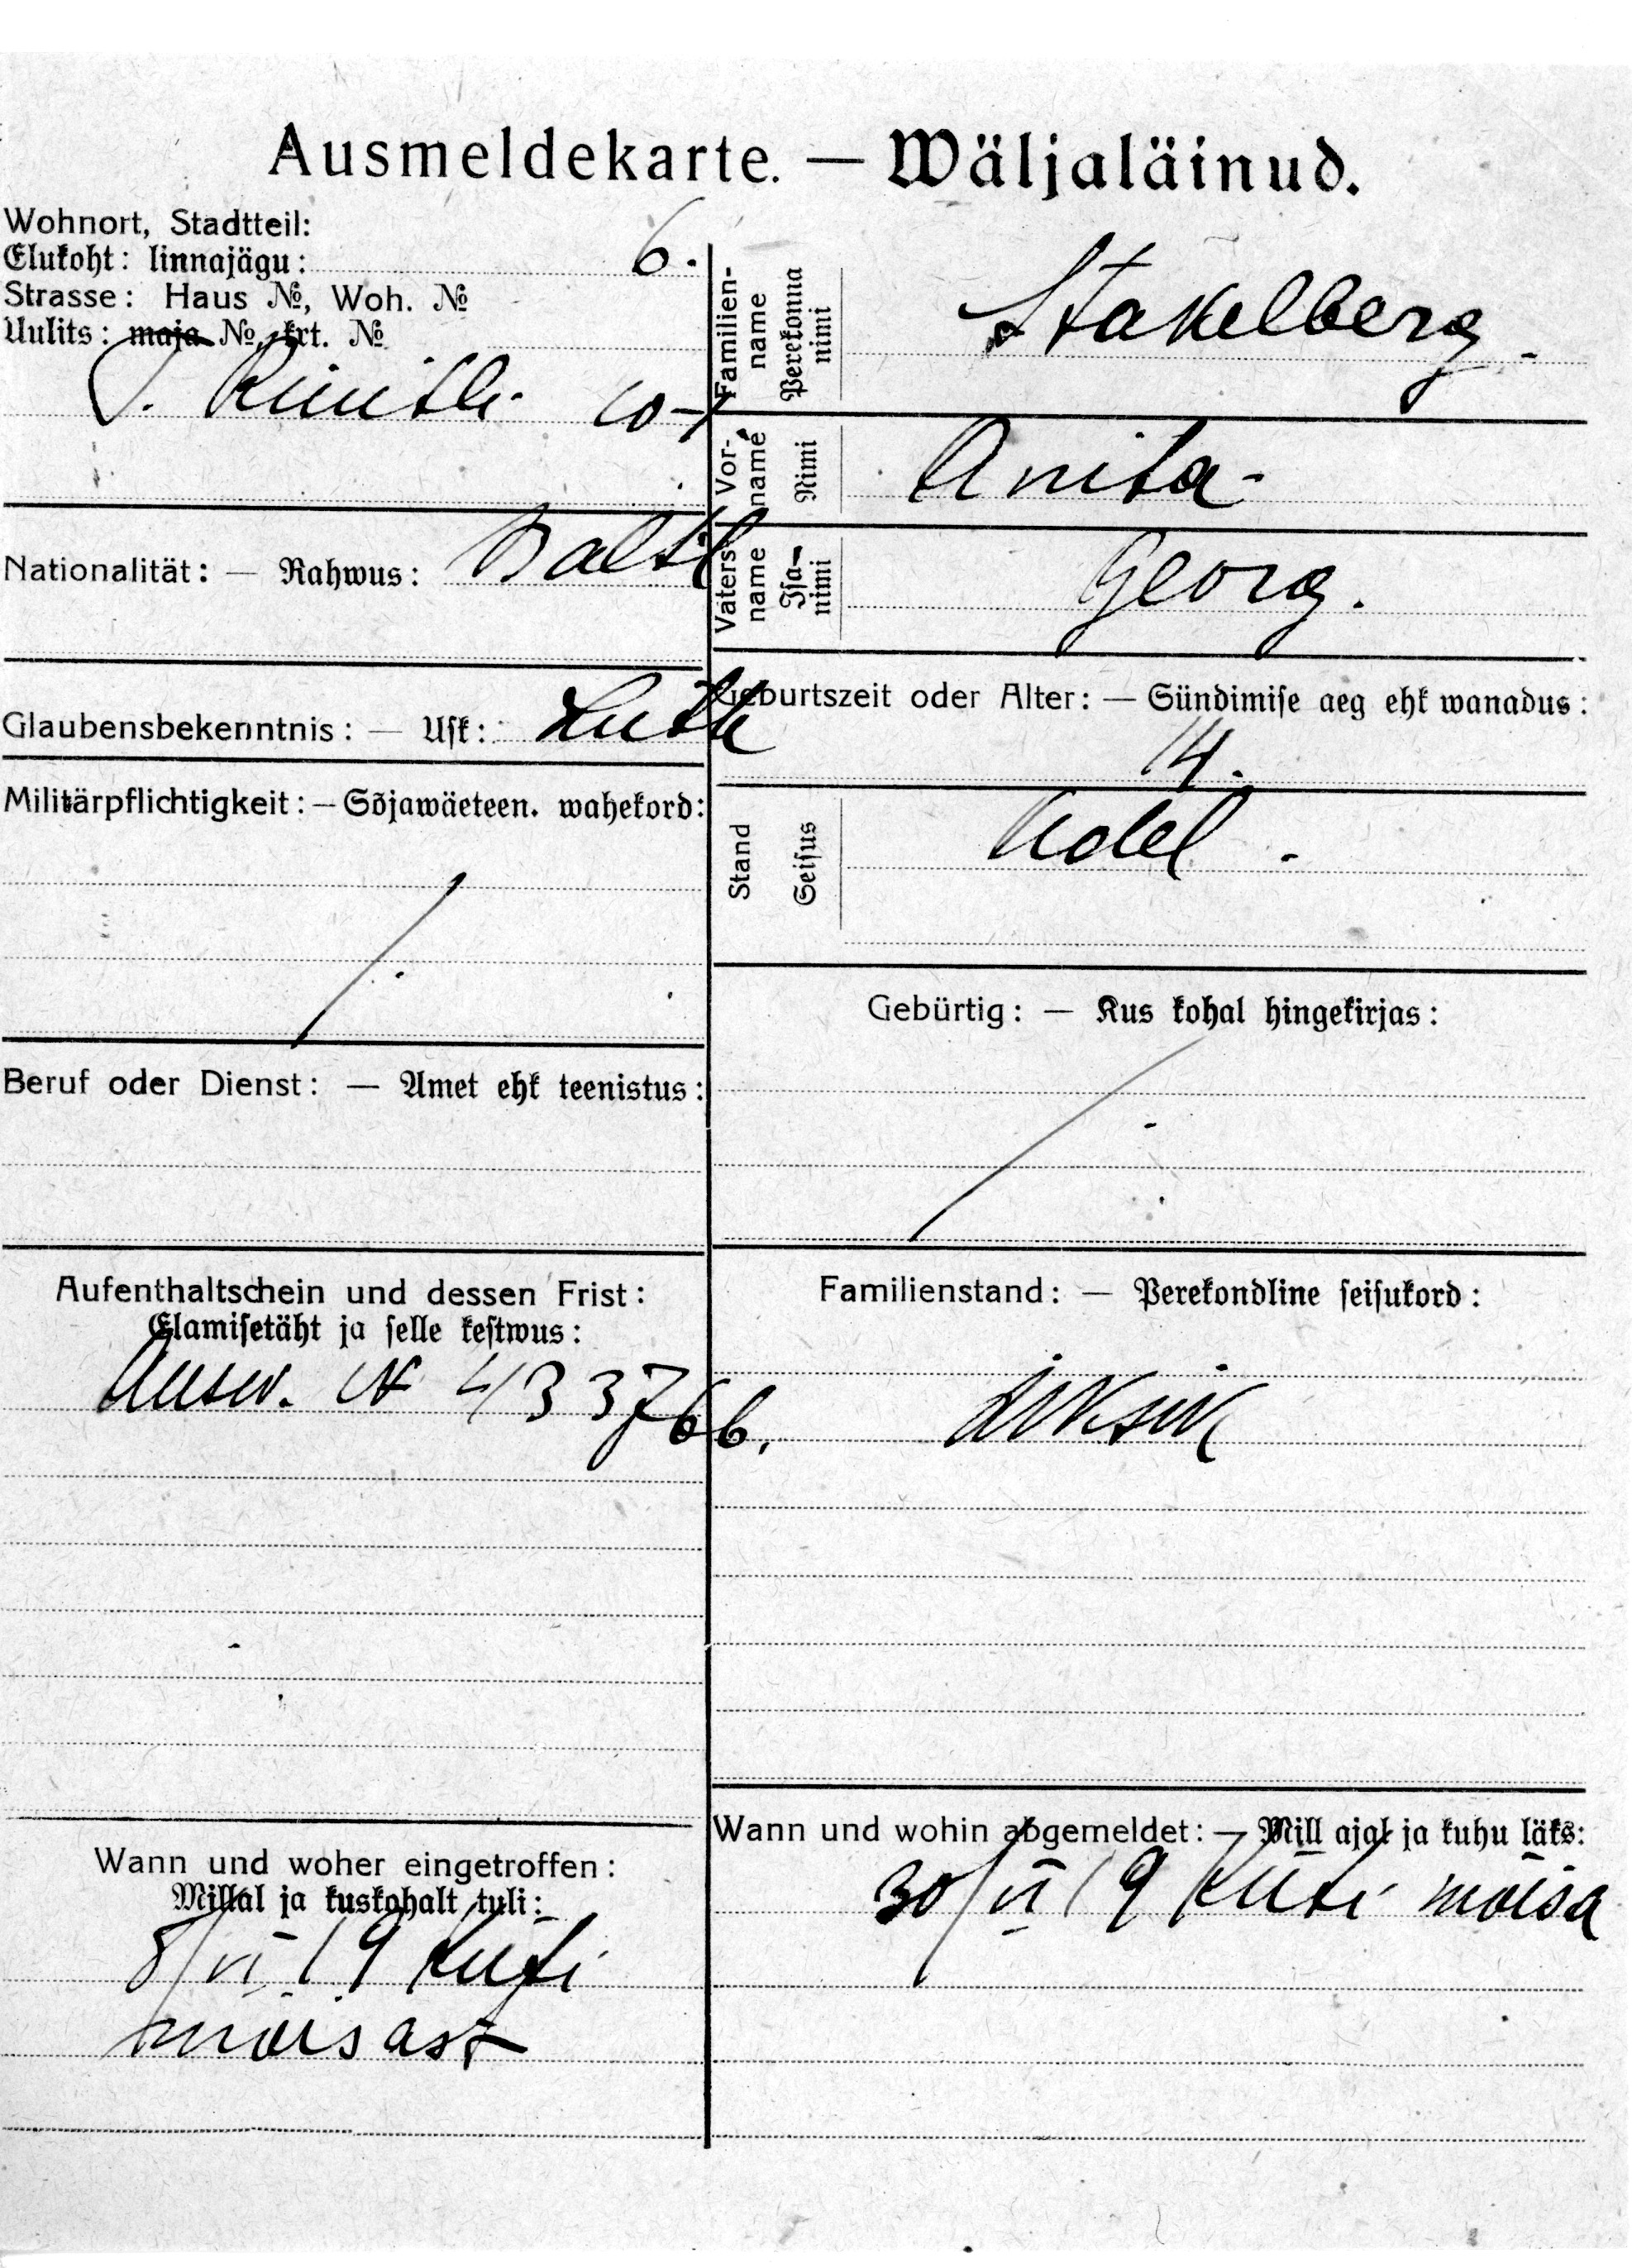 Ausmeldekarte. — Wäljaläinud.
Wohnort, Stadtteil:
Elukoht: linnajägu: 6.
Strasse: Haus №, Woh. №
Uulits: maja №, krt. №
10-
Nationalität: — Rahwus: Baltl
Glaubensbekenntnis: — Usk: Luth
Militärpflichtigkeit: — Sõjawäeteen. wahekord:
Beruf oder Dienst: — Amet ehk teenistus:
Aufenthaltschein und dessen Frist:
Elamisetäht ja selle kestwus:
Ausw. № 433766.
Wann und woher eingetroffen:
Millal ja kuskohalt tuli:
8/VI 19 Kuti
mõisast
Familien-
name
Perekonna
nimi
Stakelberg.
Vor-
name
Nimi
Anita
Vaters-
name
Isa-
nimi
Georg.
Geburtszeit oder Alter: — Sündimise aeg ehk wanadus:
14.
Stand
Seisus
Adel.
Gebürtig: — Kus kohal hingekirjas:
Familienstand: — Perekondline seisukord:
Wann und wohin abgemeldet: — Mill ajal ja kuhu läks:
30/VI 19 Kuti mõisa